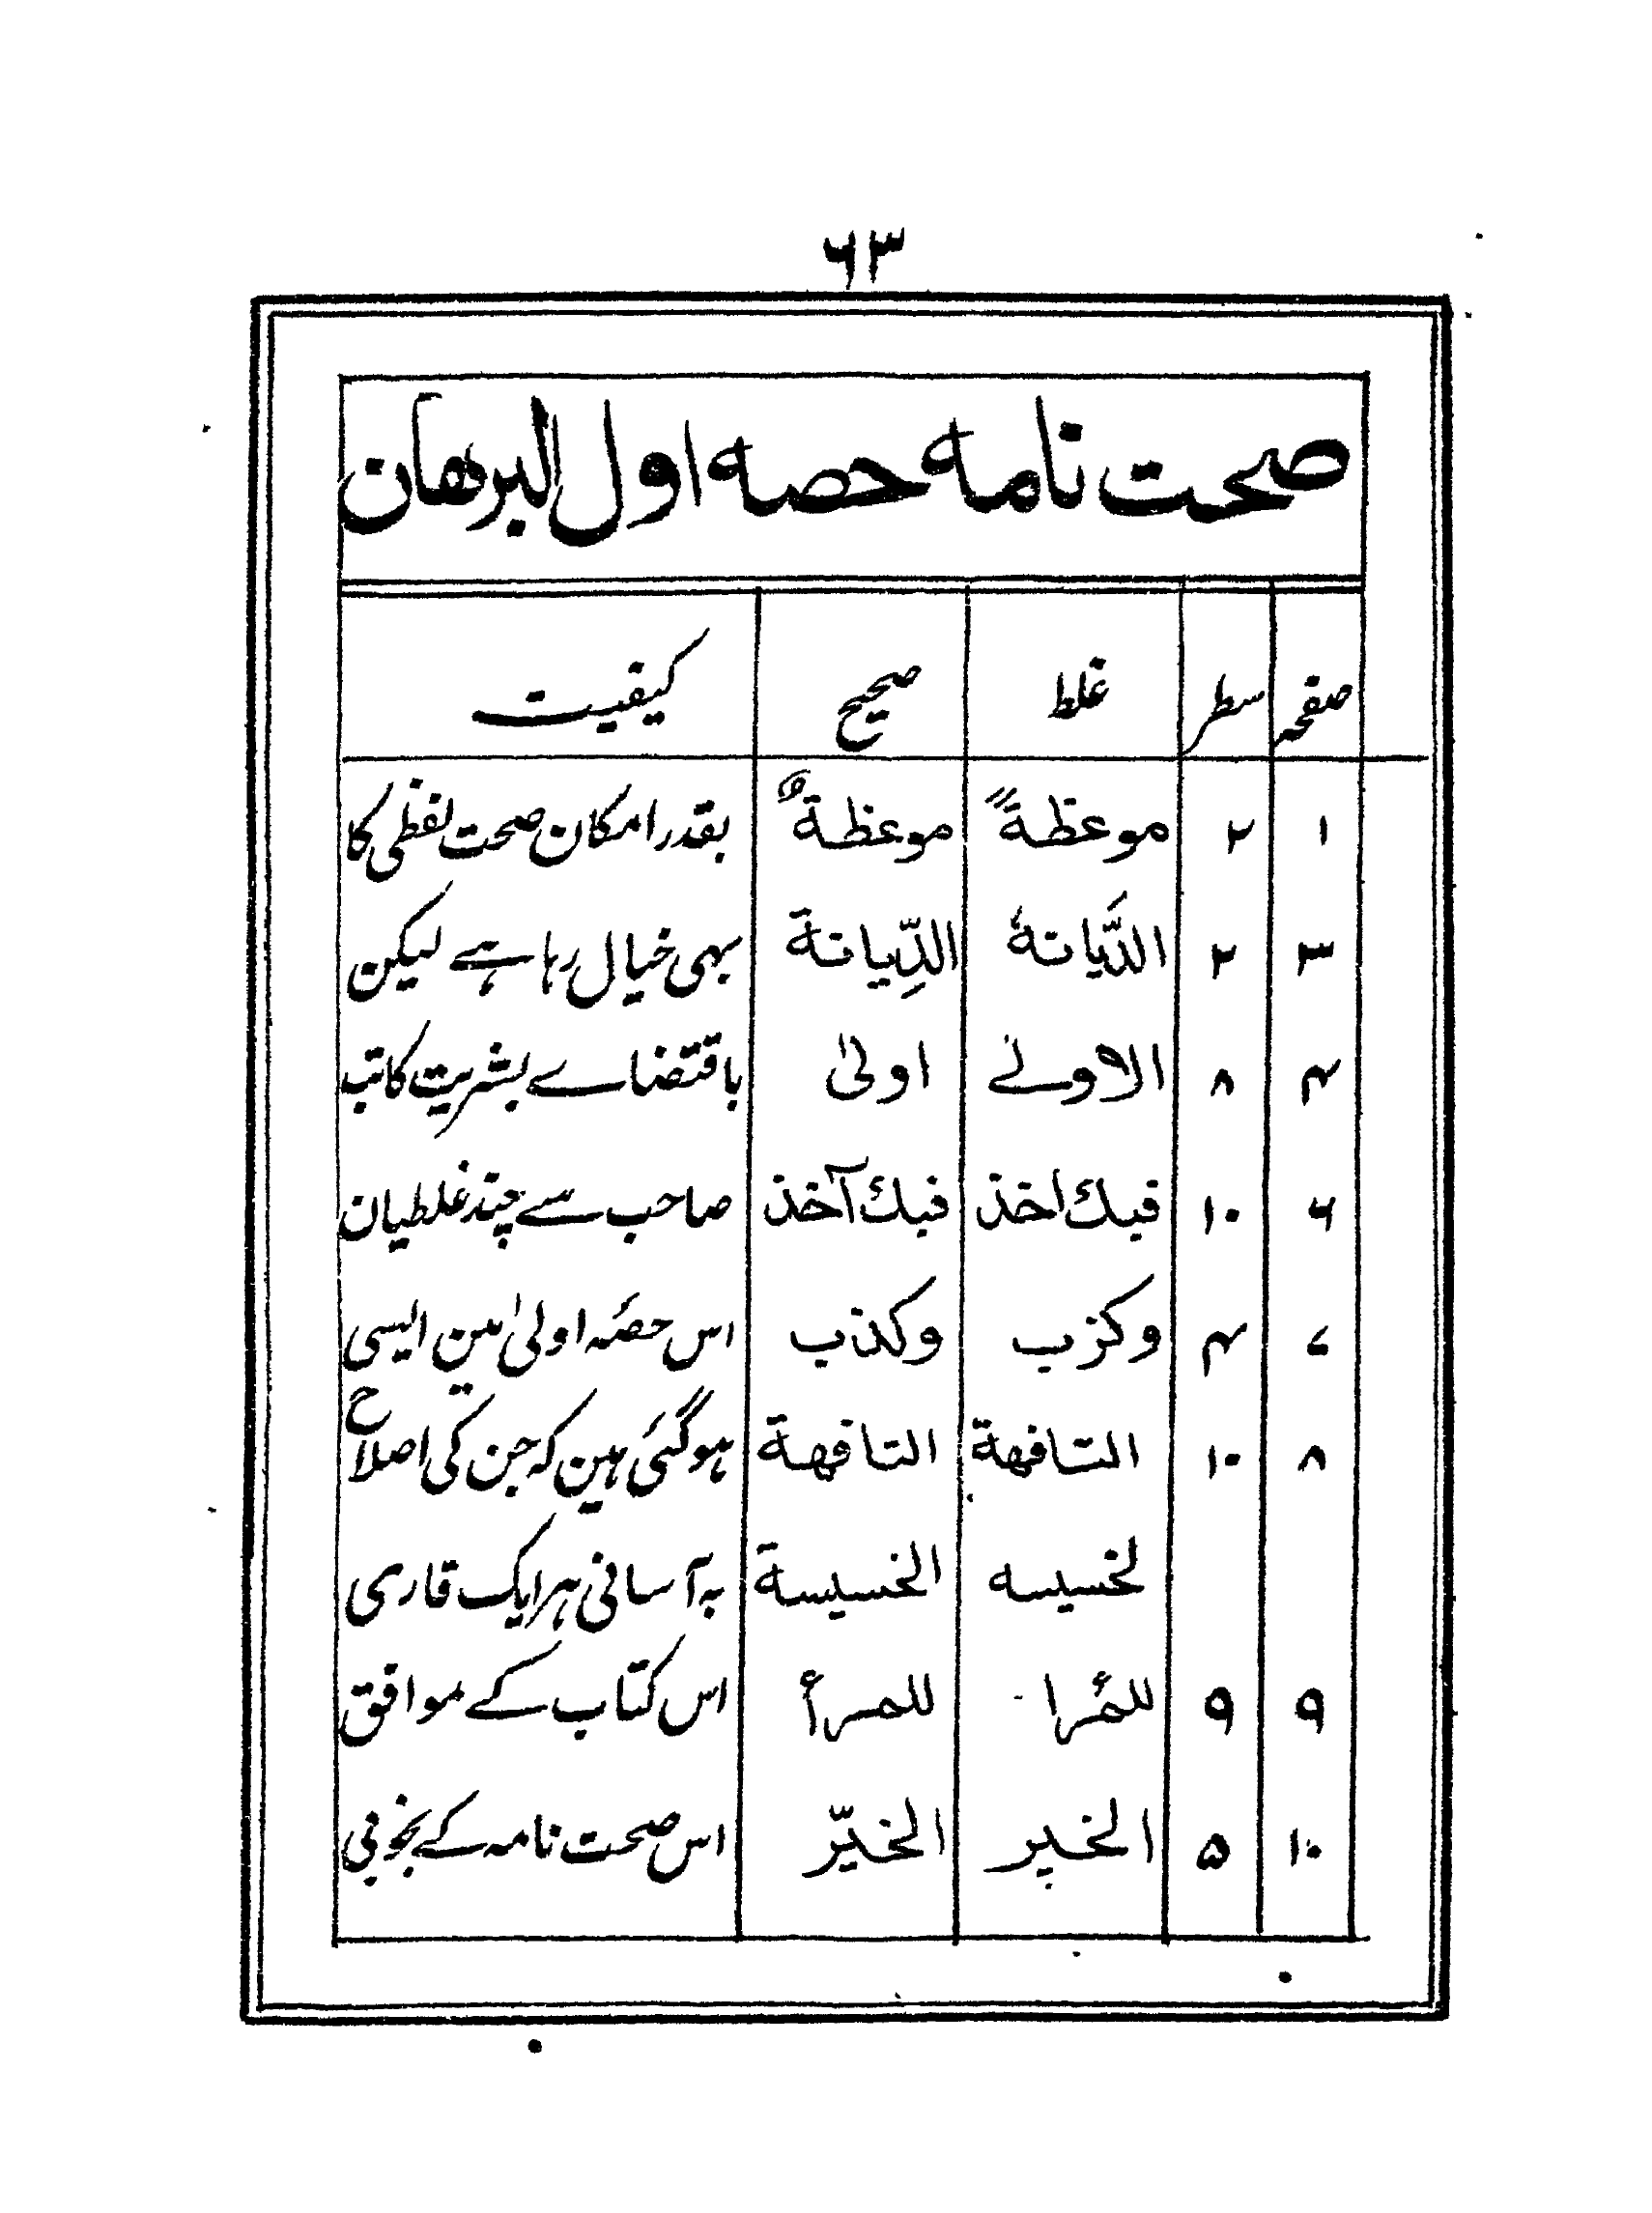 ۶۳
صحت نامہ حصہ اول البرهان
صفحہ سطر غلط صحیح کیفیت
۱ ۲ موعظةً موعظةٌ بقدر امکان صحت لفظی کا
۳ ۲ الدَّیانہ الدِّیانة بهی خیال رہا ہے لیکن
۴ ۸ الاولے اولیٰ باقتضاے بشریت کاتب
۶ ۱۰ فبك اخذ فبك آخذ صاحب سے چند غلطیان
۷ ۴ وکزب وکذب اس حصۂ اولیٰ مین ایسی
۸ ۱۰ التافهة التافهة ہوگئی ہین کہ جن کی اصلاح
لخسیسہ الخسیسة بہ آسانی ہر ایک قاری
۹ ۹ للمُرا للمرأ اس کتاب کے موافق
۱۰ ۵ الخیر الخیّر اس صحت نامہ کے بخوبی